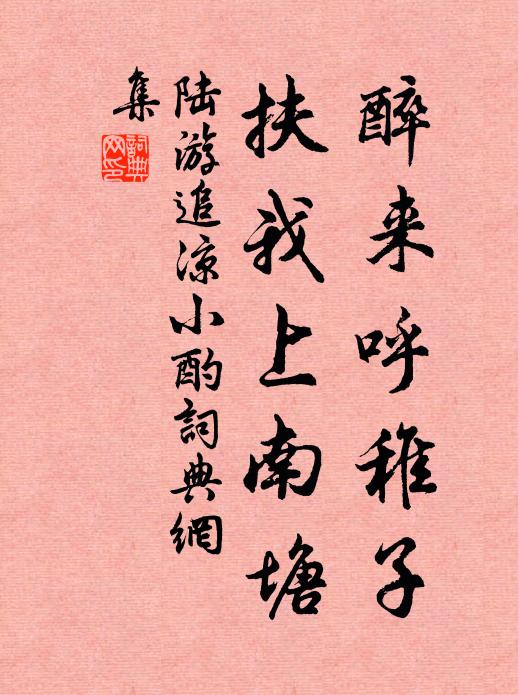 醉来呼稚子
扶我上南塘
陆游追凉小酌詞典網
集
詞典
网印